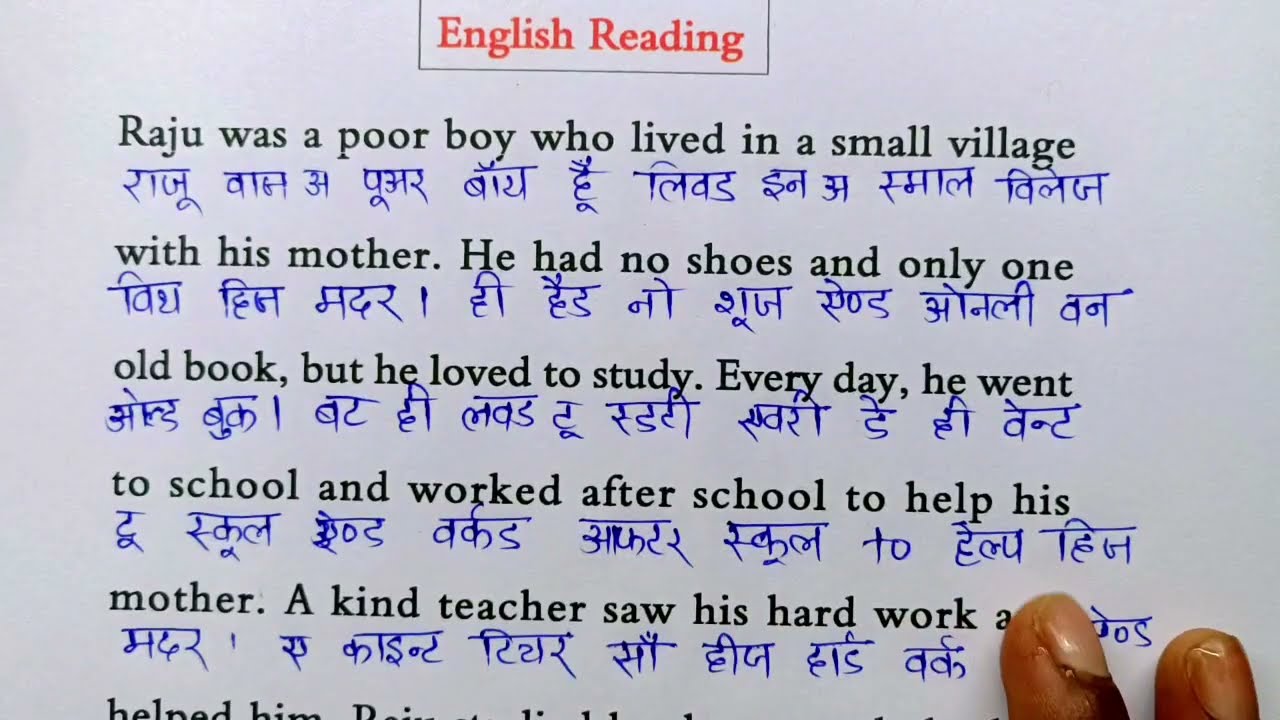 English Reading
Raju was a poor boy who lived in a small village
राजू वाज अ पूअर बॉय हूँ लिवड इन अ स्माल विलेज
with his mother. He had no shoes and only one
विथ हिज मदर। ही हैड नो शूज ऐण्ड ओनली वन
old book, but he loved to study. Every day, he went
ओल्ड बुक। बट ही लवड टू स्डटी एवरी डे ही वेन्ट
to school and worked after school to help his
टू स्कूल ऐण्ड वर्कड आफटर स्कूल to हैल्प हिज
mother. A kind teacher saw his hard work
मदर। ए काइन्ट टिचर सौ हीज हार्ड वर्क ऐण्ड
helped him. Raju studied